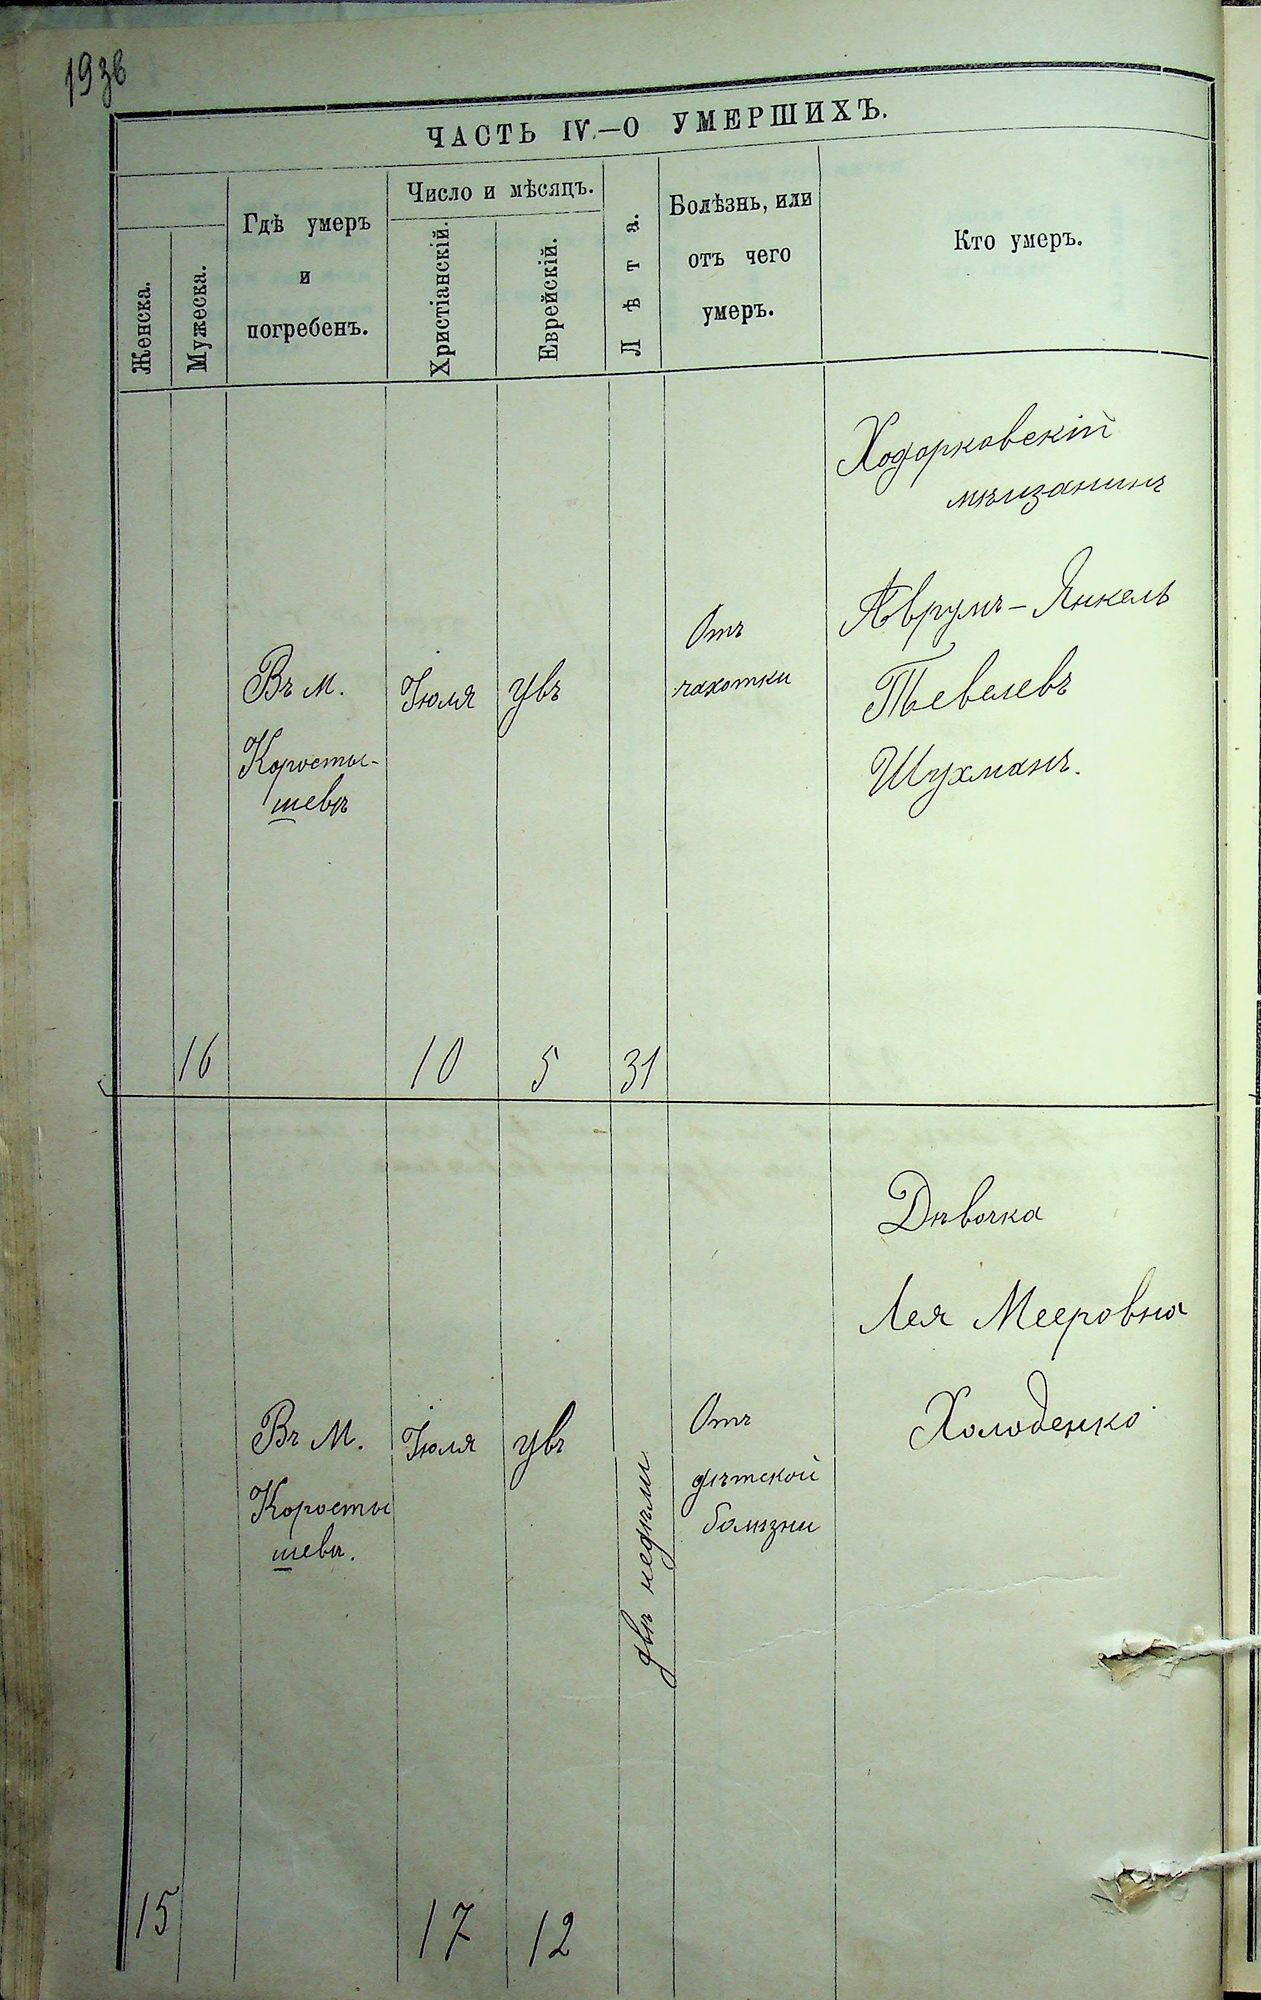 193в
ЧАСТЬ IV.—О УМЕРШИХЪ.
Женска.
Мужеска.
Гдѣ умеръ
и
погребенъ.
Число и мѣсяцъ.
Христіанскій.
Еврейскій.
Лѣта.
Болѣзнь, или
отъ чего
умеръ.
Кто умеръ.
Ходорковскій
мѣщанинъ
Аврумъ-Янкель
Тевелевъ
Шухманъ.
Отъ
чахотки
Въ м.
Коросты-
шевѣ
Іюля
Увъ
16
10
5
31
Дѣвочка
Лея Мееровна
Холоденко
Отъ
дѣтской
болѣзни
Въ м.
Коросты
шевѣ.
Іюля
Увъ
двѣ недѣли
15
17
12